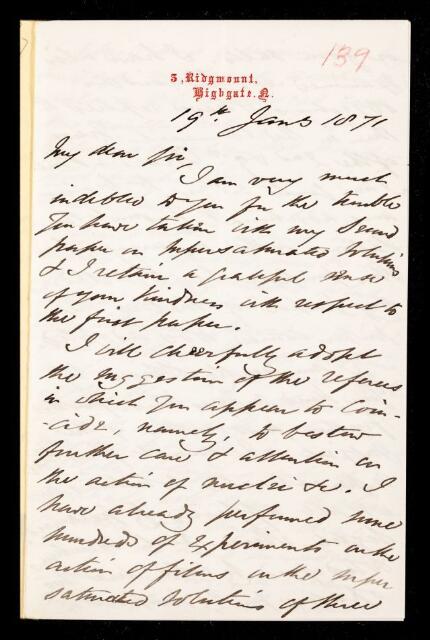 139
5, Ridgmount,
Highgate. N.
19th Jany 1871
My dear Sir,
I am very much
indebted to you for the trouble
you have taken with my second
paper on supersaturated solutions
& I retain a grateful sense
of your kindness with respect to
the first paper.
I will cheerfully adopt
the suggestion of the referees
in which you appear to coin-
-cide, namely, to bestow
further care & attention on
the action of nuclei &c. I
have already performed some
hundreds of experiments on the
action of films on the super
saturated solutions of three